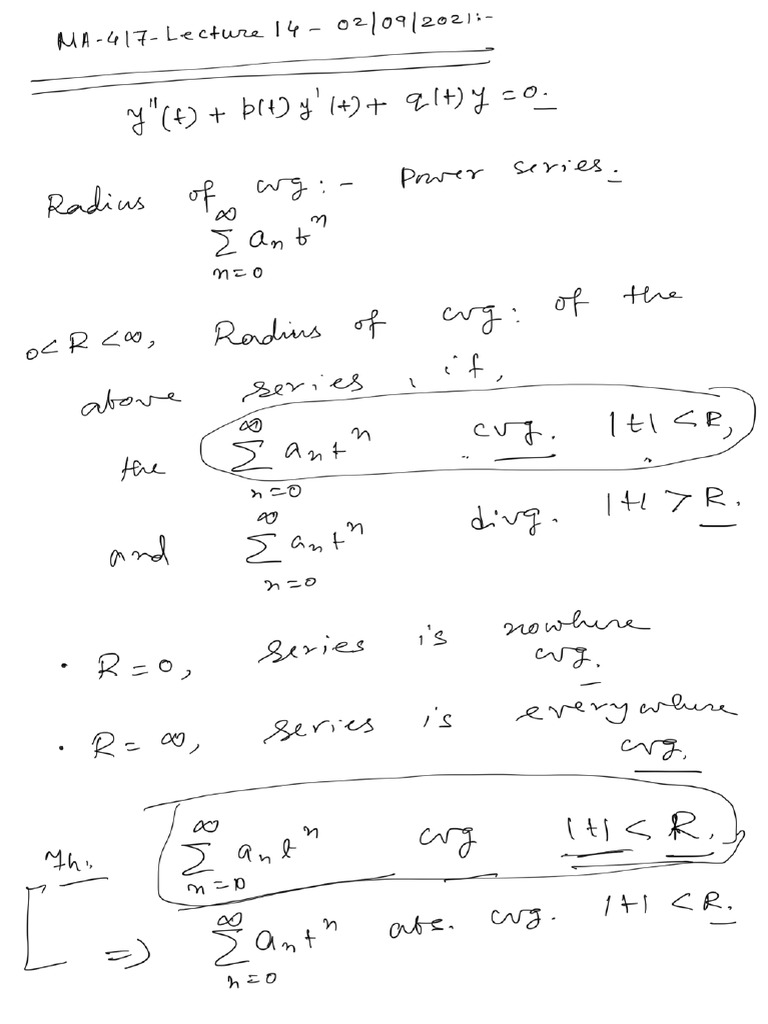 MA-417-Lecture 14 - 02/09/2021:-
y''(t) + p(t) y'(t) + q(t) y = 0.
Radius of cvg:- Power series.
∞
Σ aₙ tⁿ
n=0
0<R<∞, Radius of cvg: of the
above series, if,
the ∞ Σ n=0 aₙtⁿ cvg. |t|<R,
and ∞ Σ n=0 aₙtⁿ divg. |t|>R.
· R=0, series is nowhere
cvg.
· R=∞, series is everywhere
cvg.
Th. ∞ Σ n=0 aₙtⁿ cvg |t|<R.
=> ∞ Σ n=0 aₙtⁿ abs. cvg. |t|<R.